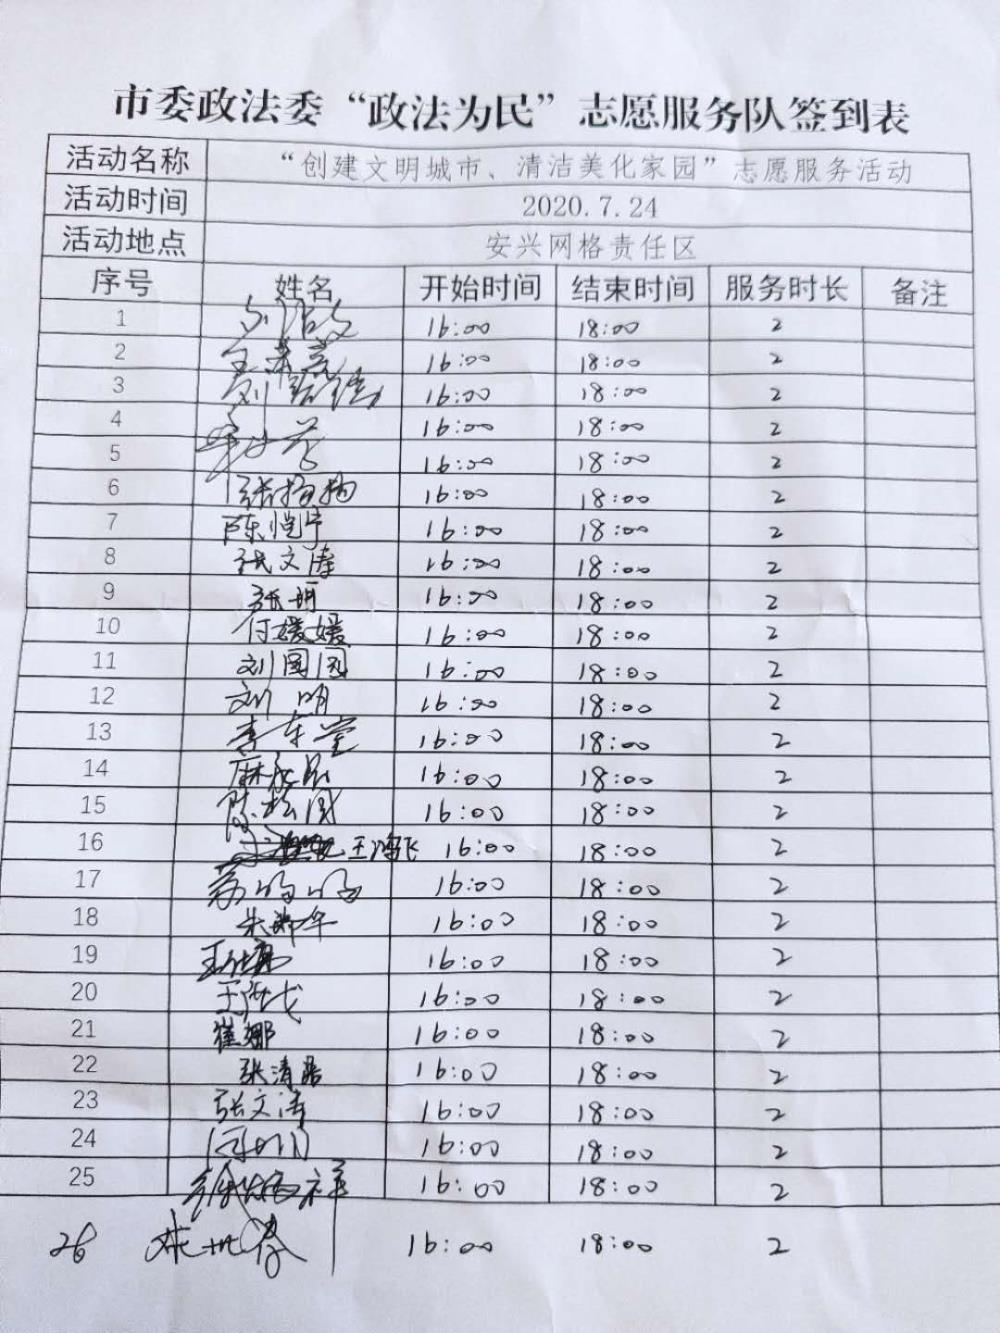 市委政法委“政法为民”志愿服务队签到表
活动名称 “创建文明城市、清洁美化家园”志愿服务活动
活动时间 2020.7.24
活动地点 安兴网格责任区
序号 姓名 开始时间 结束时间 服务时长 备注
1 16:00 18:00 2
2 16:00 18:00 2
3 刘 16:00 18:00 2
4 16:00 18:00 2
5 16:00 18:00 2
6 张 16:00 18:00 2
7 陈恺宇 16:00 18:00 2
8 张文涛 16:00 18:00 2
9 张明 16:00 18:00 2
10 付媛媛 16:00 18:00 2
11 刘国因 16:00 18:00 2
12 刘明 16:00 18:00 2
13 李东堂 16:00 18:00 2
14 麻永昌 16:00 18:00 2
15 陈松國 16:00 18:00 2
16 王鸿飞 16:00 18:00 2
17 16:00 18:00 2
18 朱 16:00 18:00 2
19 王 16:00 18:00 2
20 王 16:00 18:00 2
21 崔娜 16:00 18:00 2
22 张清 16:00 18:00 2
23 张文涛 16:00 18:00 2
24 16:00 18:00 2
25 徐 祥 16:00 18:00 2
26 16:00 18:00 2